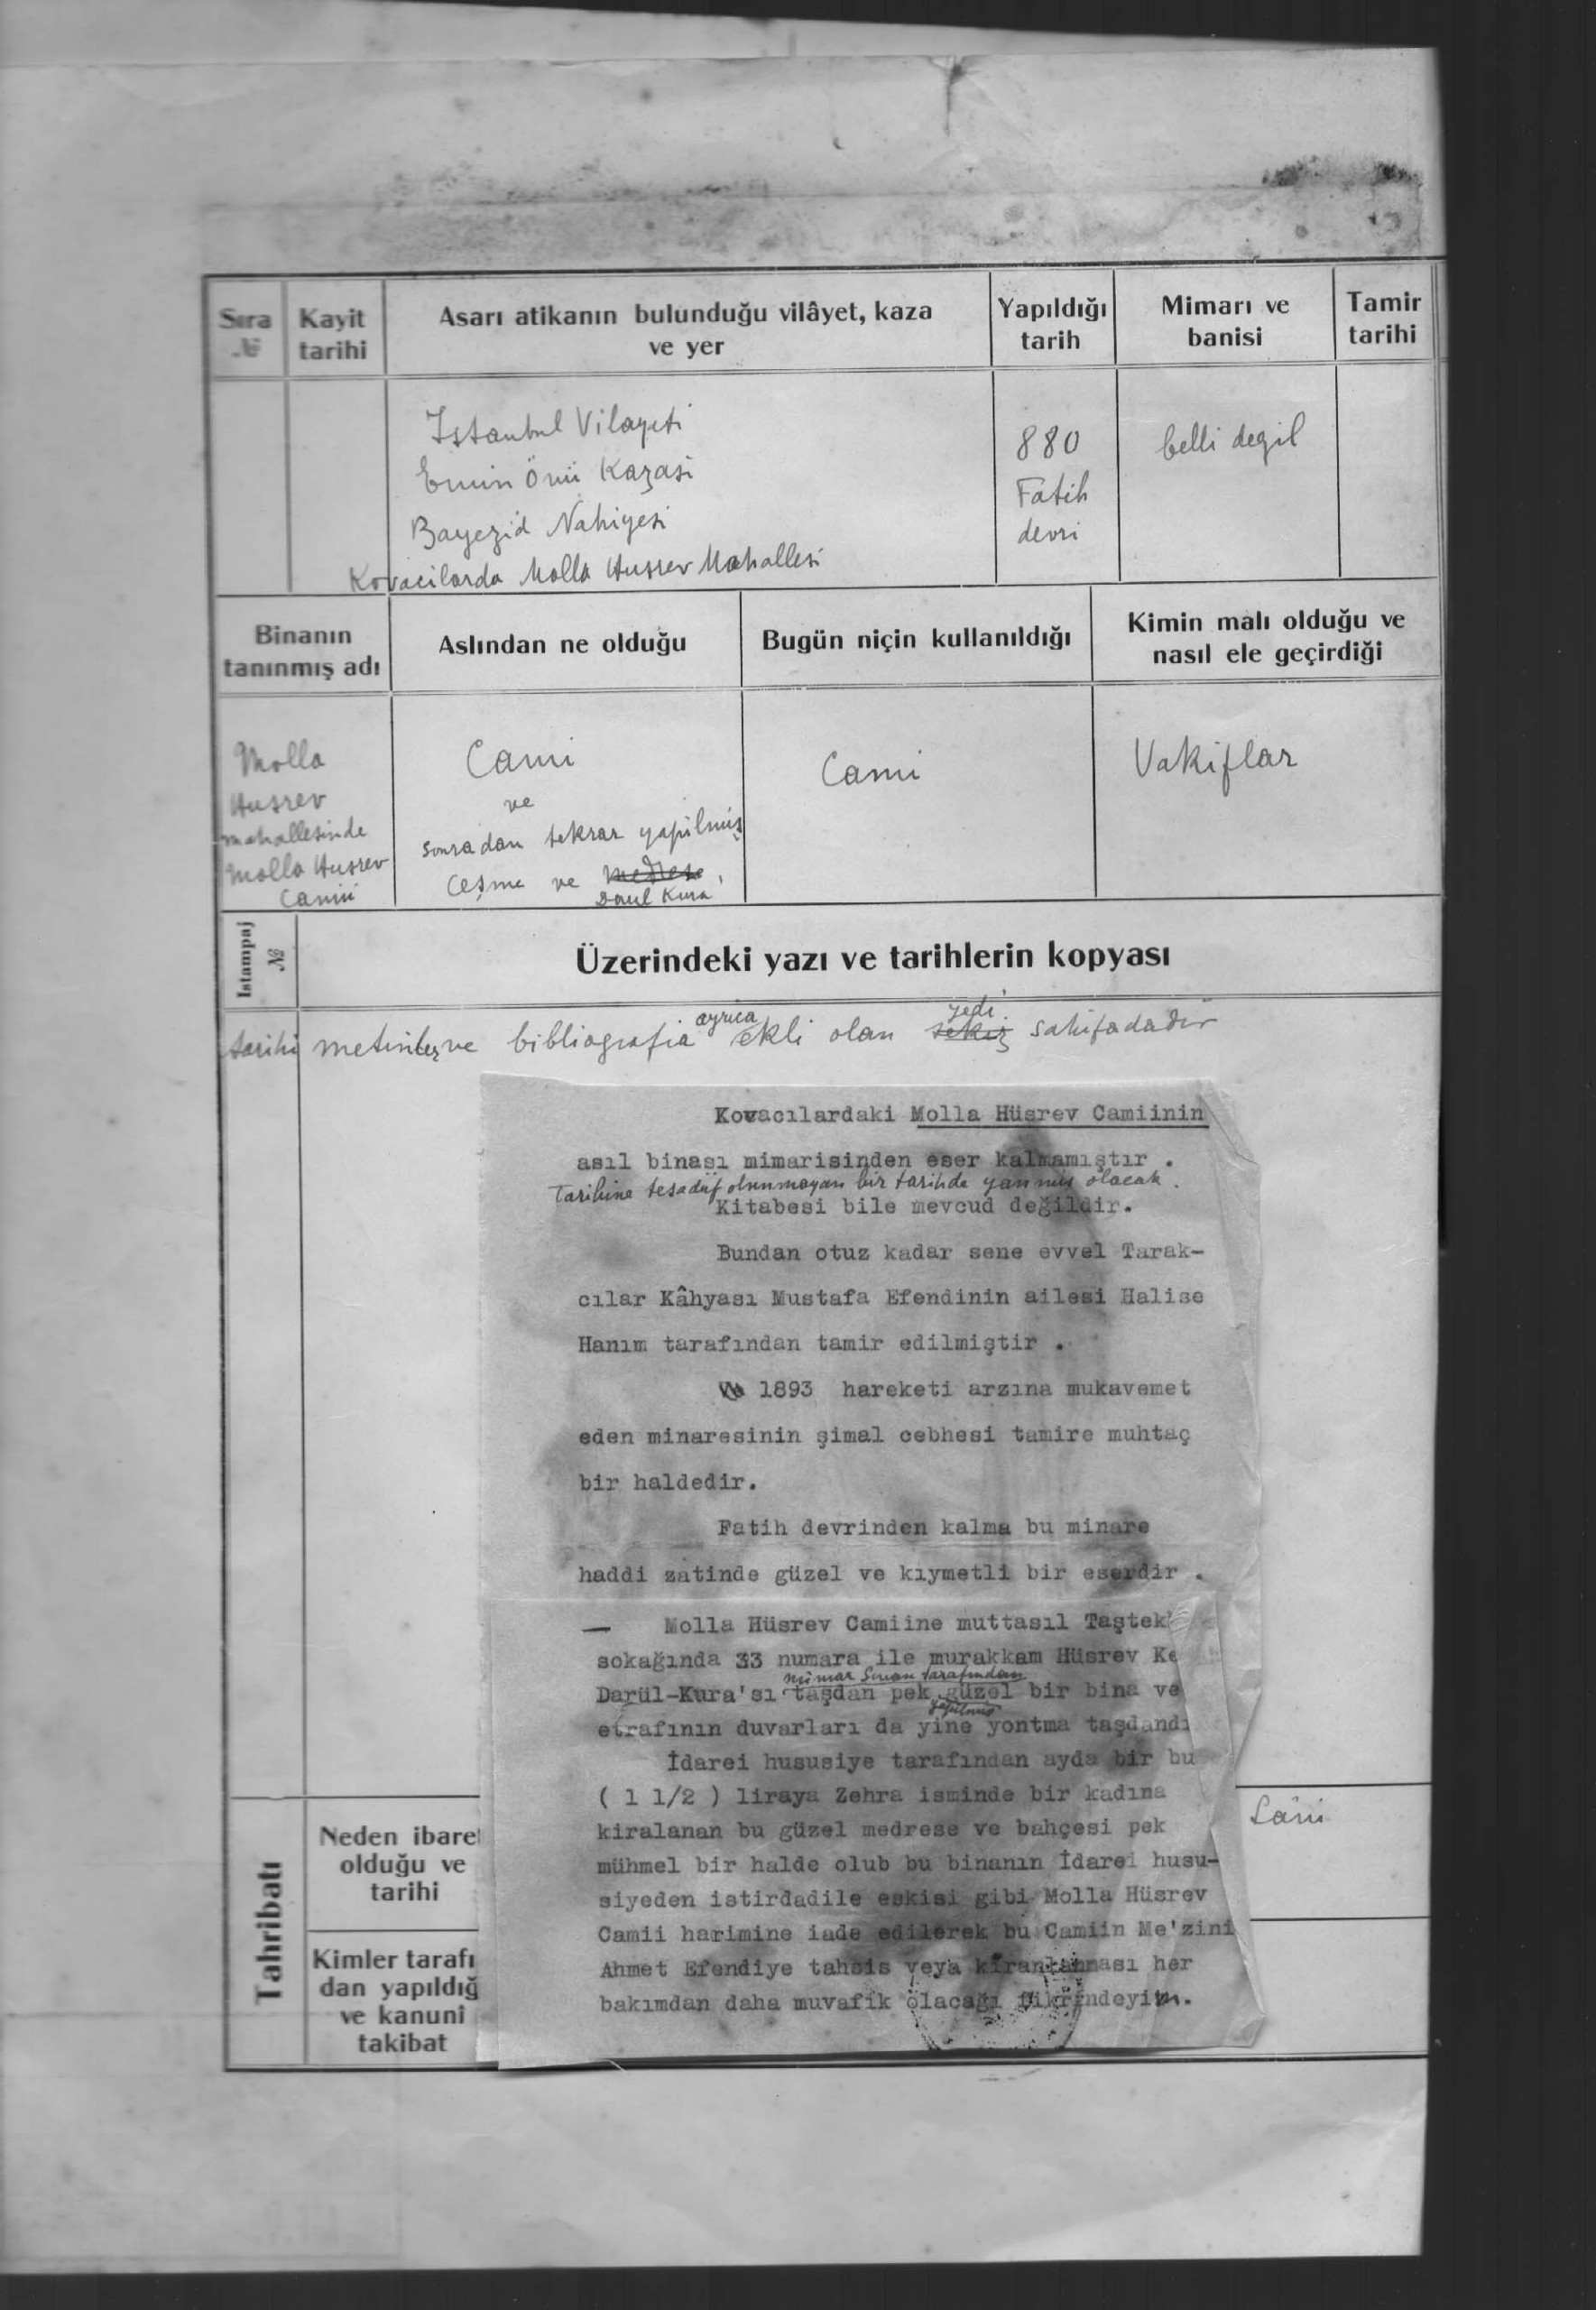 Sıra
№
Kayit
tarihi
Asarı atikanın bulunduğu vilâyet, kaza
ve yer
Yapıldığı
tarih
Mimarı ve
banisi
Tamir
tarihi
Istanbul Vilayeti
Emin Önü Kazasi
Bayezid Nahiyesi
Kovacilarda Molla Husrev Mahallesi
880
Fatih
devri
belli degil
Binanın
tanınmış adı
Aslından ne olduğu
Bugün niçin kullanıldığı
Kimin malı olduğu ve
nasıl ele geçirdiği
Molla
Husrev
mahallesinde
Molla Husrev
Camii
Cami
ve
sonradan tekrar yapilmiş
Çeşme ve medrese
Darul Kura
Cami
Vakiflar
Istampaj
№
Üzerindeki yazı ve tarihlerin kopyası
ayrıca yedi
tarihi metinler ve bibliografia ekli olan sekiz sahifadadır
Kovacılardaki Molla Hüsrev Camiinin
asıl binası mimarisinden eser kalmamıştır .
Tarihine tesadüf olunmayan bir tarihde yanmış olacak .
Kitabesi bile mevcud değildir.
Bundan otuz kadar sene evvel Tarak-
cılar Kâhyası Mustafa Efendinin ailesi Halise
Hanım tarafından tamir edilmiştir .
1893 hareketi arzına mukavemet
eden minaresinin şimal cebhesi tamire muhtaç
bir haldedir.
Fatih devrinden kalma bu minare
haddi zatinde güzel ve kıymetli bir eserdir .
— Molla Hüsrev Camiine muttasıl Taştek
sokağında 33 numara ile murakkam Hüsrev Ke
mimar Sinan tarafından
Darül-Kura'sı taşdan pek güzel bir bina ve
yapılmış
etrafının duvarları da yine yontma taşdandı
İdarei hususiye tarafından ayda bir bu
( 1 1/2 ) liraya Zehra isminde bir kadına
kiralanan bu güzel medrese ve bahçesi pek
mühmel bir halde olub bu binanın İdarei husu-
siyeden istirdadile eskisi gibi Molla Hüsrev
Camii harimine iade edilerek bu Camiin Me'zini
Ahmet Efendiye tahsis veya her
bakımdan daha muvafik olacağı fikrindeyim.
Tahribatı
Neden ibaret
olduğu ve
tarihi
Kimler tarafı
dan yapıldığ
ve kanuni
takibat